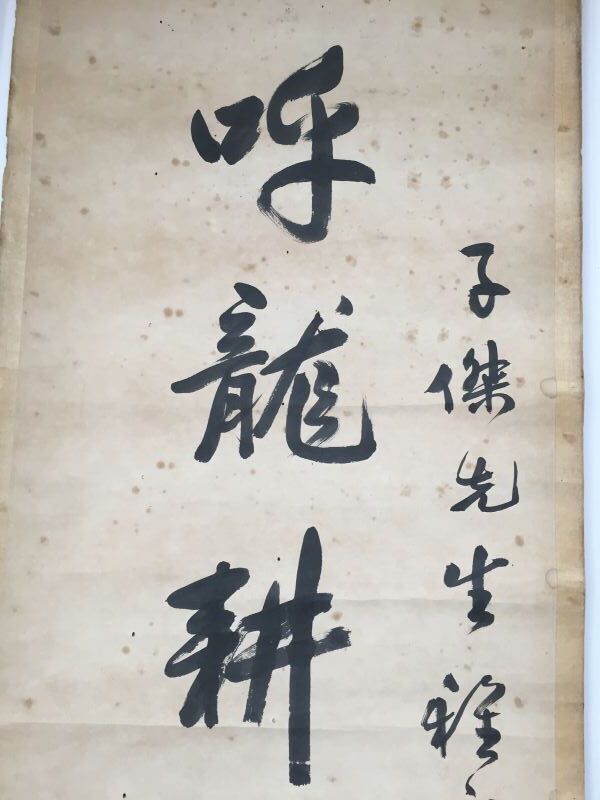 子傑先生雅
呼龍耕